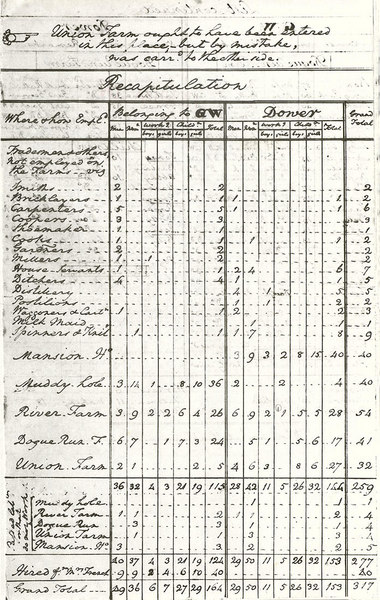 Union Farm ought to have been entered
in this place, but by mistake,
was carrd to the other side.
Recapitulation
Where & how Empld Belonging to GW Dower Grand Total
Men Wom Workg boys girls Childn boys girls Total Men Wom Workg boys girls Childn boys girls Total
Tradesmen & others
not employed on
the Farms viz
Smiths 2 2 2
Bricklayers 1 1 1 1 2
Carpenters 5 5 1 1 6
Coopers 3 3 3
Shoemaker 1 1 1
Cooks 1 1 1 1 2
Gardners 2 2 2
Millers 1 1 2 2
House Servants 1 1 2 4 6 7
Ditchers 4 4 1 1 5
Distillery 4 1 5 5
Postilions 1 1 2 2
Waggoners & Cartrs 1 1 2 2 3
Milk Maid 1 1 1
Spinners & Knitrs 1 1 1 7 8 9
Mansion Ho 3 9 3 2 8 15 40 40
Muddy hole 3 14 1 8 10 36 2 2 4 40
River Farm 3 9 2 2 6 4 26 6 9 2 1 5 5 28 54
Dogue Run F. 6 7 1 7 3 24 5 1 5 6 17 41
Union Farm 2 1 2 5 4 6 3 8 6 27 32
36 32 4 3 21 19 115 28 42 11 5 26 32 144 259
Muddy hole 1 1 1
River Farm 1 1 2 2 2 4
Dogue Run 3 3 1 1 4
Union Farm 1 1 3 3 4
Mansion Ho 3 3 2 2 5
40 37 4 3 21 19 124 29 50 11 5 26 32 153 277
Hired of Mrs French 9 9 2 4 6 10 40 40
Grand Total 49 36 6 7 27 29 164 29 50 11 5 26 32 153 317